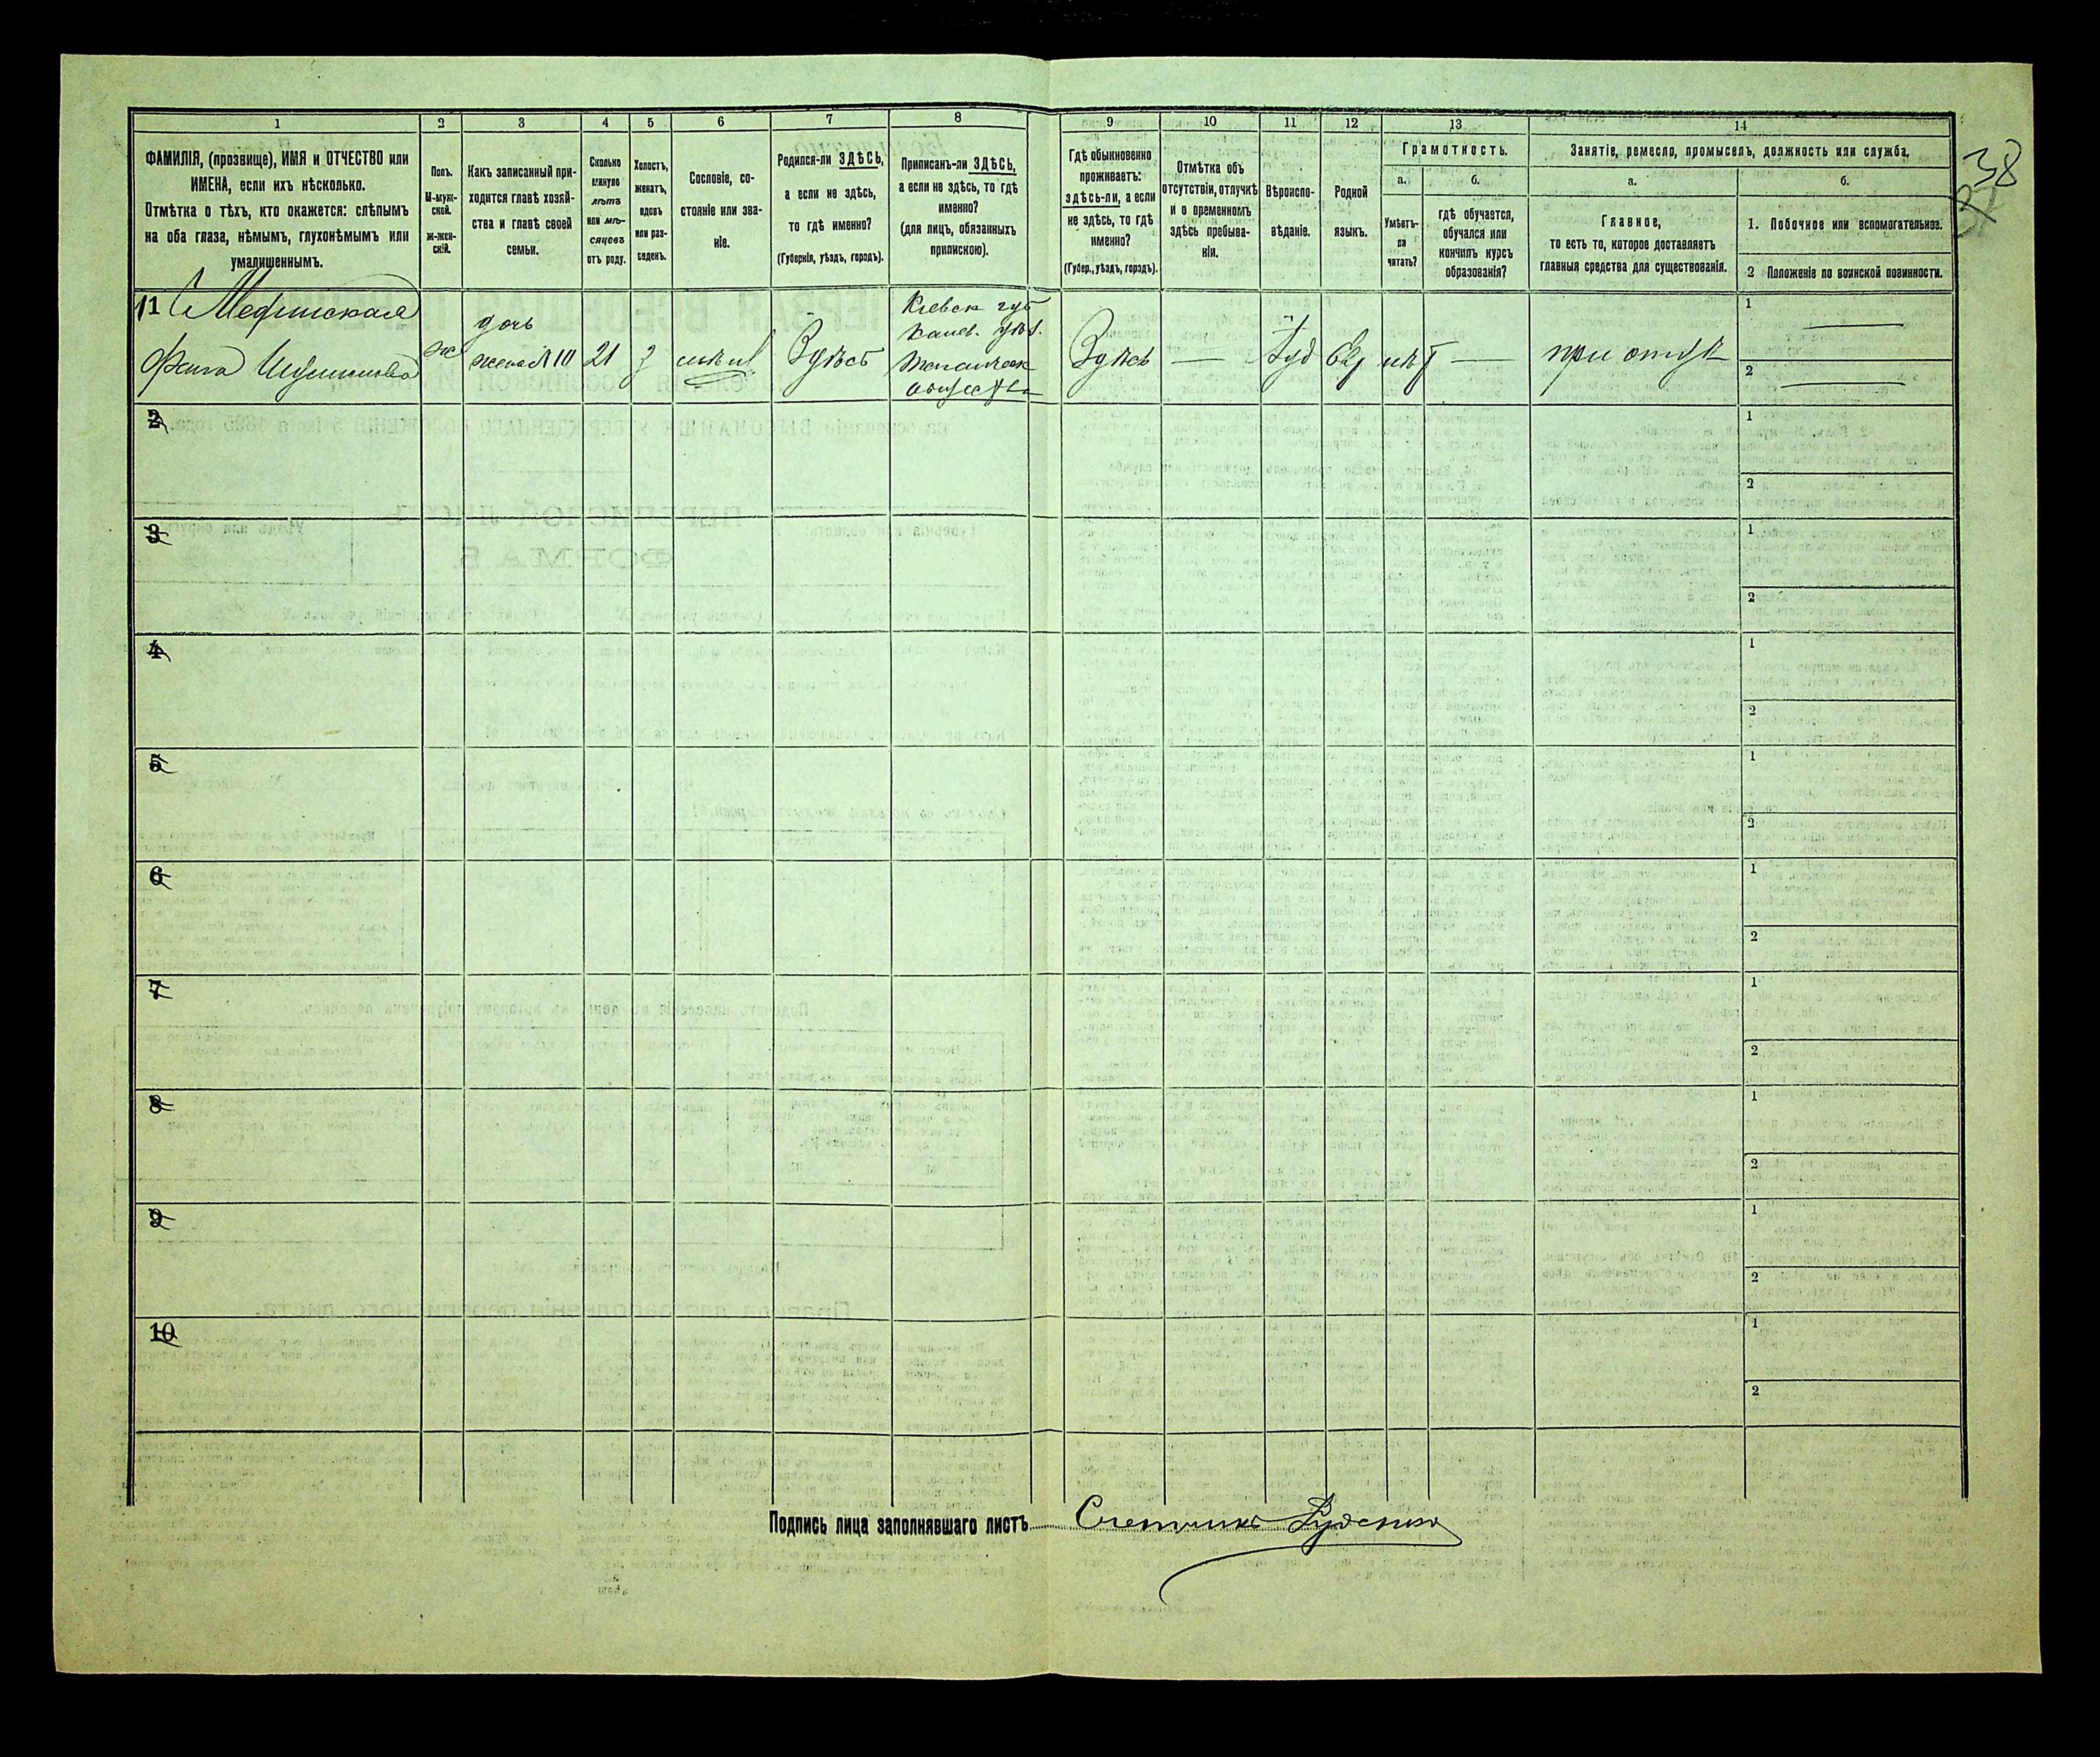 1
2
3
4
5
6
7
8
9
10
11
12
13
14
ФАМИЛІЯ, (прозвище), ИМЯ и ОТЧЕСТВО или
ИМЕНА, если ихъ нѣсколько.
Отмѣтка о тѣхъ, кто окажется: слѣпымъ
на оба глаза, нѣмымъ, глухонѣмымъ или
умалишеннымъ.
Полъ.
М-муж-
ской.
Ж-жен-
скій.
Какъ записанный при-
ходится главѣ хозяй-
ства и главѣ своей
семьи.
Сколько
минуло
лѣтъ
или мѣ-
сяцевъ
отъ роду.
Холостъ,
женатъ,
вдовъ
или раз-
веденъ.
Сословіе, со-
стояніе или зва-
ніе.
Родился-ли ЗДѢСЬ,
а если не здѣсь,
то гдѣ именно?
(Губернія, уѣздъ, городъ).
Приписанъ-ли ЗДѢСЬ,
а если не здѣсь, то гдѣ
именно?
(для лицъ, обязанныхъ
припискою).
Гдѣ обыкновенно
проживаетъ:
здѣсь-ли, а если
не здѣсь, то гдѣ
именно?
(Губер., уѣздъ, городъ).
Отмѣтка объ
отсутствіи, отлучкѣ
и о временномъ
здѣсь пребыва-
ніи.
Вѣроиспо-
вѣданіе.
Родной
языкъ.
Грамотность.
а.
б.
Умѣетъ-
ли
читать?
гдѣ обучается,
обучался или
кончилъ курсъ
образованія?
Занятіе, ремесло, промыселъ, должность или служба.
а.
б.
Главное,
то есть то, которое доставляетъ
главныя средства для существованія.
1. Побочное или вспомогательное.
2 Положеніе по воинской повинности.
38
11
ж
дочь
жена № 10
21
з
Здѣсь
Кіевск губ
Канев. уѣз.
общества
Здѣсь
—
Іуд
Евр
нѣт
—
при отцѣ
1 —
2 —
2
1
2
3
1
2
4
1
2
5
1
2
6
1
2
7
1
2
8
1
2
9
1
2
10
1
2
Подпись лица заполнявшаго листъ
Счетчикъ Руденко